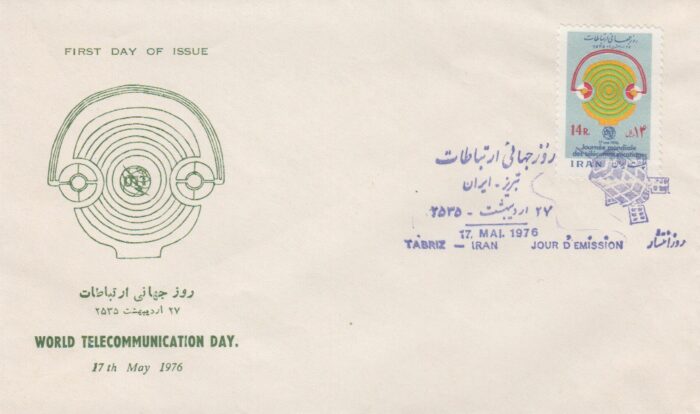 FIRST DAY OF ISSUE
روز جهانی ارتباطات
۲۷ اردیبهشت ۲۵۳۵
WORLD TELECOMMUNICATION DAY.
17th May 1976
روز جهانی ارتباطات
14R.
۱۴
Journée mondiale
des télécommunications
IRAN
روز جهانی ارتباطات
تبریز - ایران
۲۷ اردیبهشت - ۲۵۳۵
17. MAI. 1976
TABRIZ — IRAN JOUR D'EMISSION روز انتشار